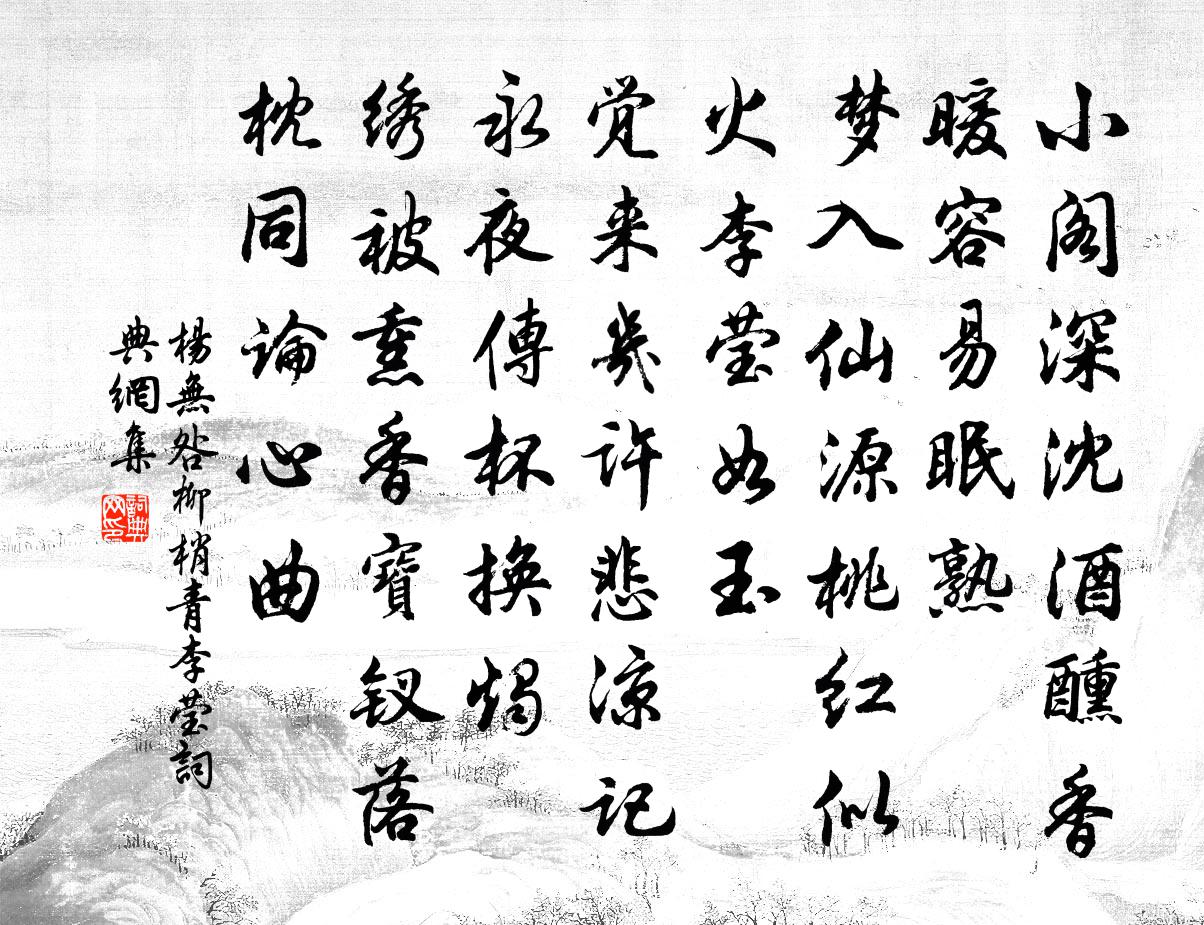 小阁深沈酒醺香
暖容易眠熟
梦入仙源桃红似
火李莹如玉
觉来幾许悲涼记
永夜傳杯換燭
绣被熏香寶钗落
枕同論心曲
楊無咎柳梢青李莹詞
典網集
詞典
网印